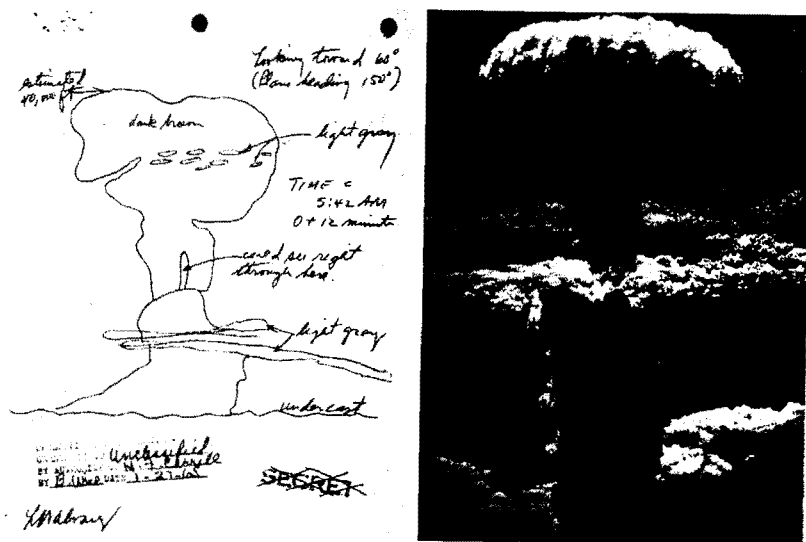 Looking toward 60°
(Plane heading 150°)
estimated
40,000 ft
dark brown
light gray
TIME =
5:42 AM
0+12 minutes
could see right
through here.
light gray
undercast
Unclassified
BY
BY DATE
SECRET